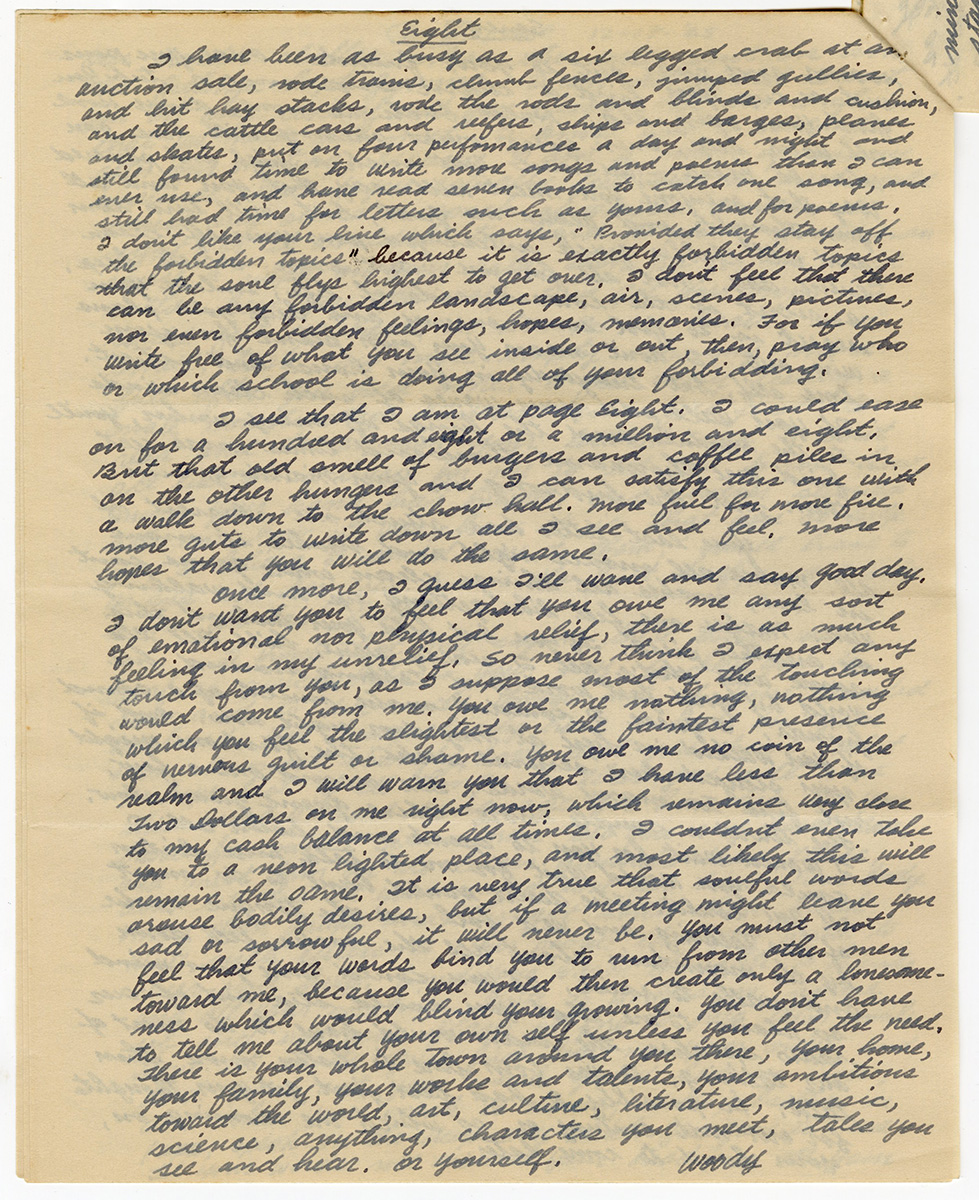 Eight
I have been as busy as a six legged crab at an
auction sale, rode trains, clumb fences, jumped gullies,
and hit hay stacks, rode the rods and blinds and cushion,
and the cattle cars and reefers, ships and barges, planes
and skates, put on four perfomances a day and night and
still found time to write more songs and poems than I can
ever use, and have read seven books to catch one song, and
still had time for letters such as yours, and for poems.
I don't like your line which says, "Provided they stay off
the forbidden topics" because it is exactly forbidden topics
that the soul flys highest to get over. I don't feel that there
can be any forbidden landscape, air, scenes, pictures,
nor even forbidden feelings, hopes, memories. For if you
write free of what you see inside or out, then, pray who
or which school is doing all of your forbidding.
I see that I am at page Eight. I could ease
on for a hundred and eight or a million and eight.
But that old smell of burgers and coffee piles in
on the other hungers and I can satisfy this one with
a walk down to the chow hall. more fuel for more fire.
more guts to write down all I see and feel. more
hopes that you will do the same.
once more, I guess I'll wave and say good day.
I don't want you to feel that you owe me any sort
of emotional nor physical relief, there is as much
feeling in my unrelief. So never think I expect any
touch from you, as I suppose most of the touching
would come from me. You owe me nothing, nothing
which you feel the slightest or the faintest presence
of nervous guilt or shame. You owe me no coin of the
realm and I will warn you that I have less than
Two Dollars on me right now, which remains very close
to my cash balance at all times. I couldnt even take
you to a neon lighted place, and most likely this will
remain the same. It is very true that soulful words
arouse bodily desires, but if a meeting might leave you
sad or sorrowful, it will never be. You must not
feel that your words bind you to run from other men
toward me, because you would then create only a lonesome-
ness which would blind your growing. You don't have
to tell me about your own self unless you feel the need.
There is your whole town around you there, your home,
your family, your works and talents, your ambitions
toward the world, art, culture, literature, music,
science, anything, characters you meet, tales you
see and hear. or yourself.
Woody